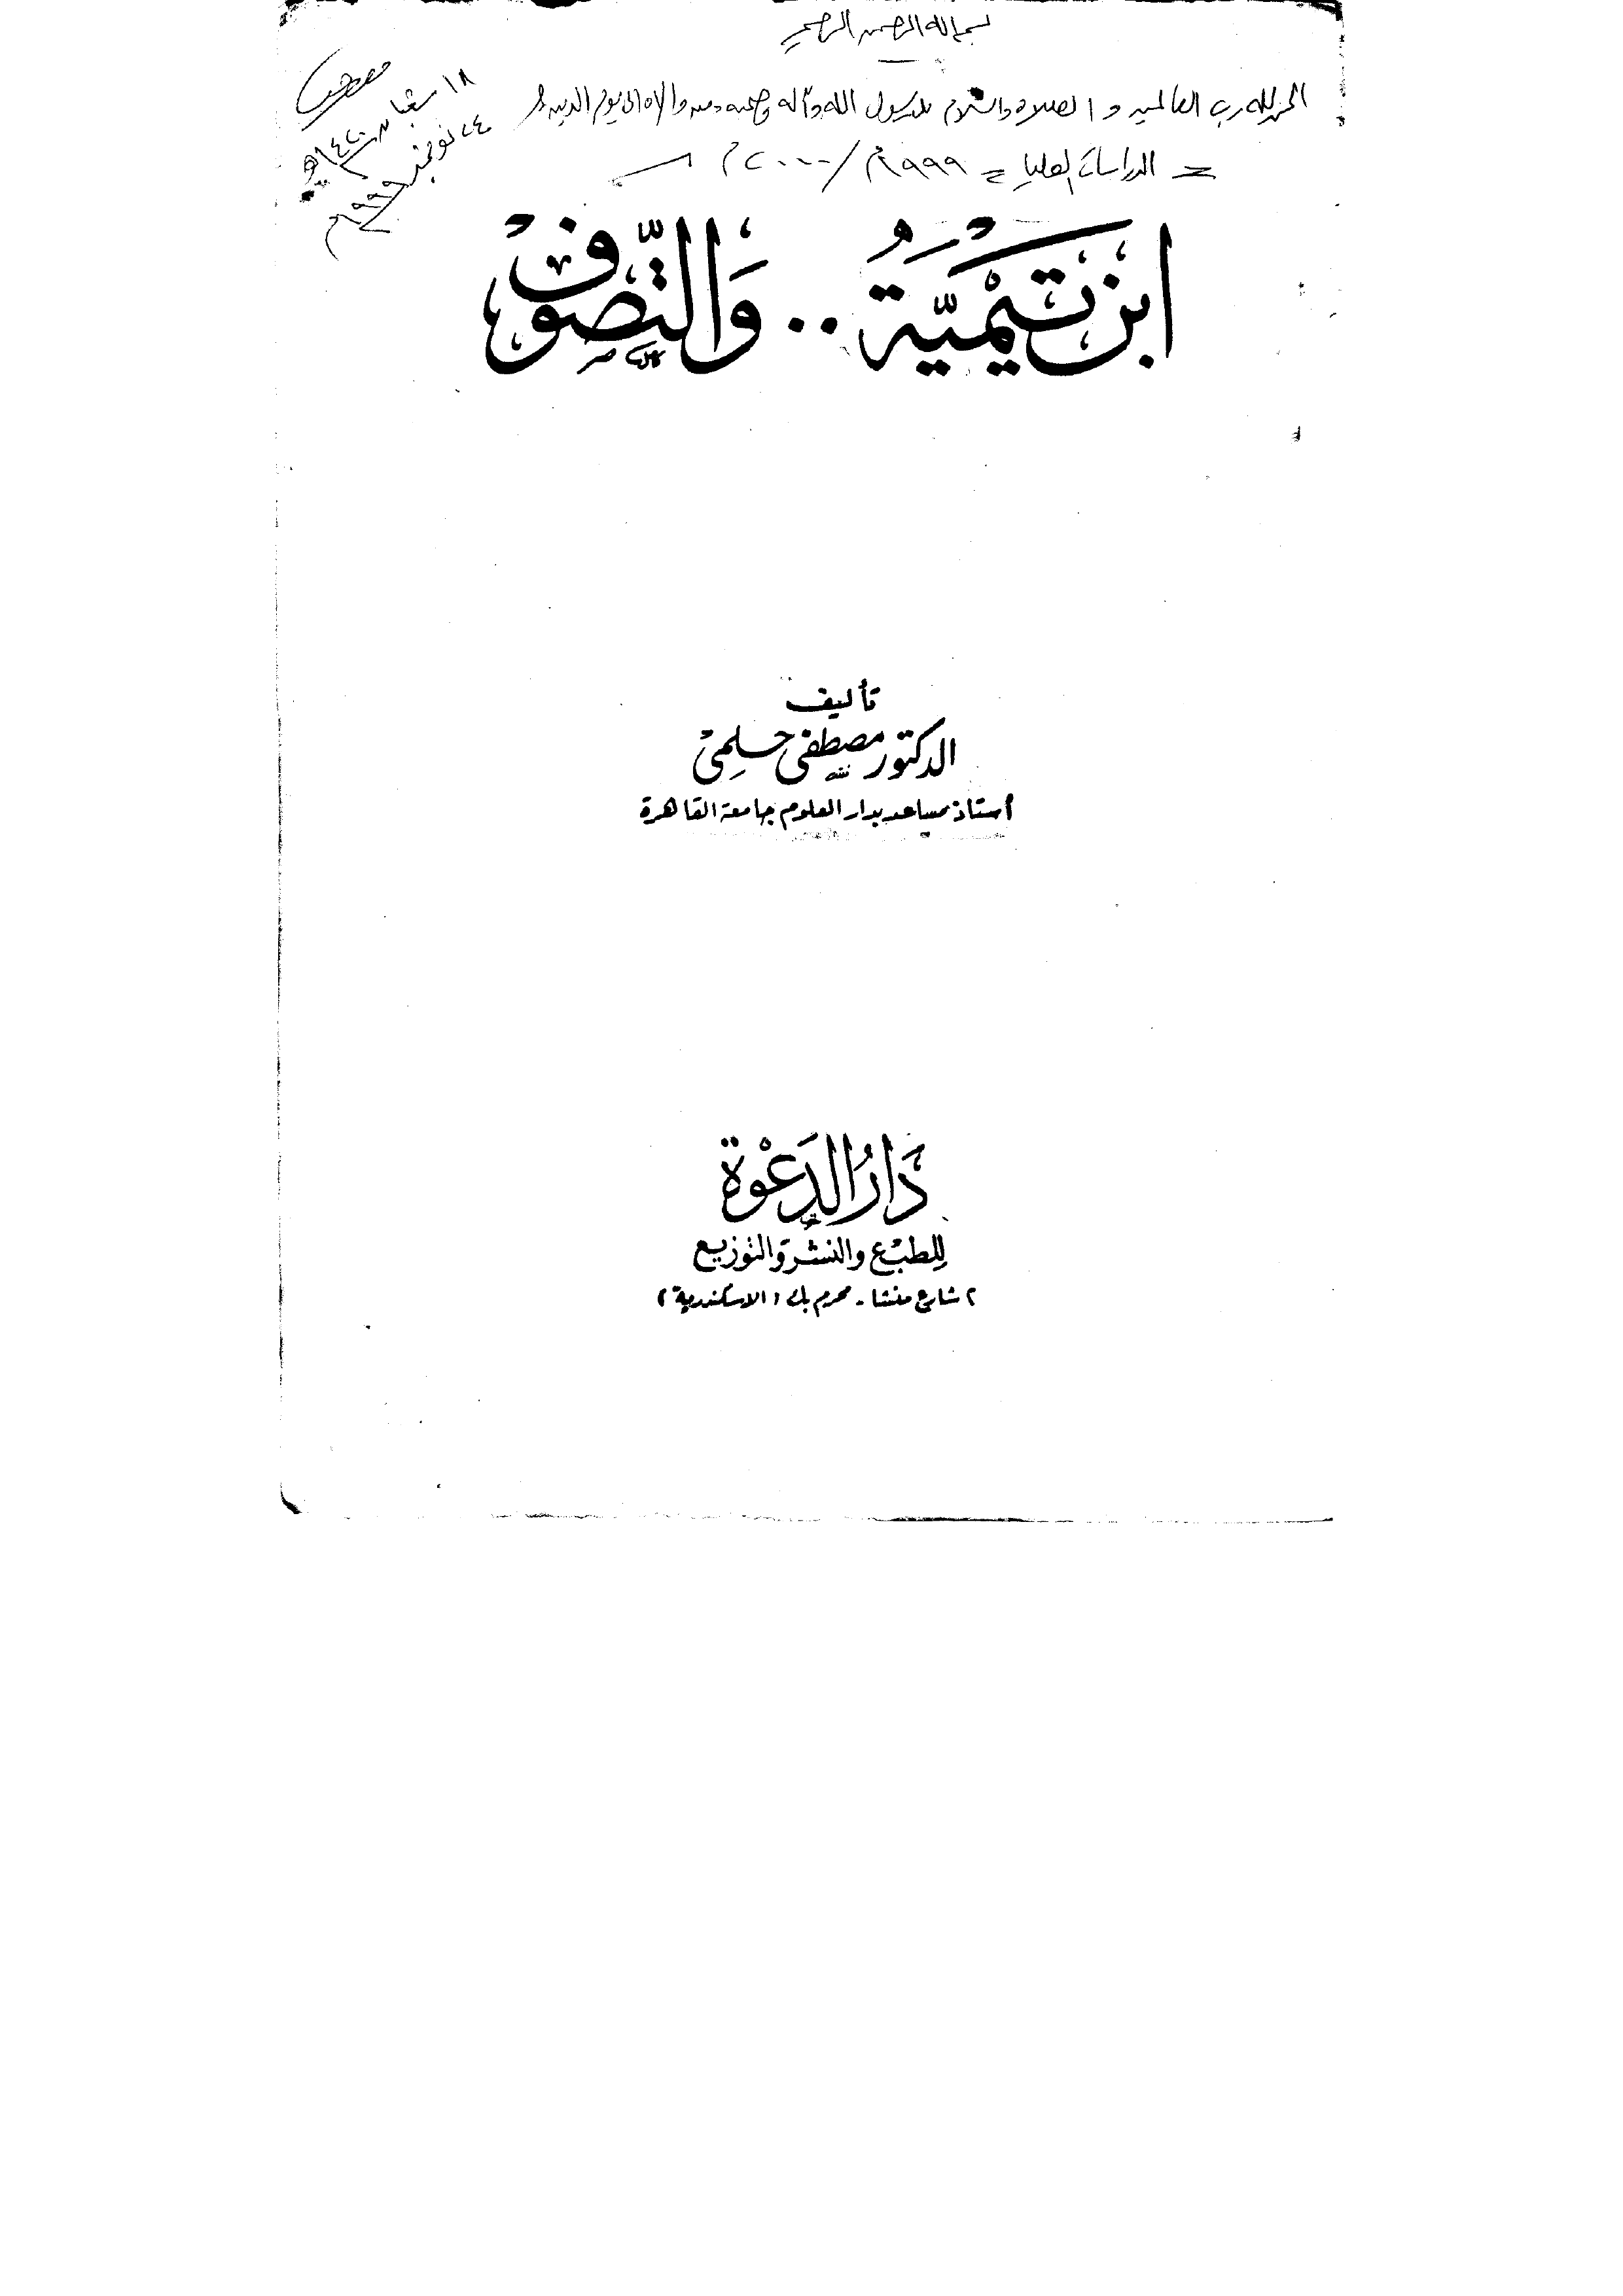 بسم الله الرحمن الرحيم
الحمد لله رب العالمين والصلاة والسلام على رسول الله وآله وصحبه ومن والاه إلى يوم الدين
= الدراسات العليا = ١٩٩٩م / ٢٠٠٠م
١٨ شعبان ١٤٢٠هـ
٢٤ نوفمبر ١٩٩٩م
ابْن تَيْمِيَّةُ .. وَالتَّصَوُّفْ
تأليف
الدكتور مصطفى حلمى
أستاذ مساعد بدار العلوم جامعة القاهرة
دَارُ الدَّعْوَة
للطبع والنشر والتوزيع
٢ شارع منشا - محرم بك (الاسكندرية)